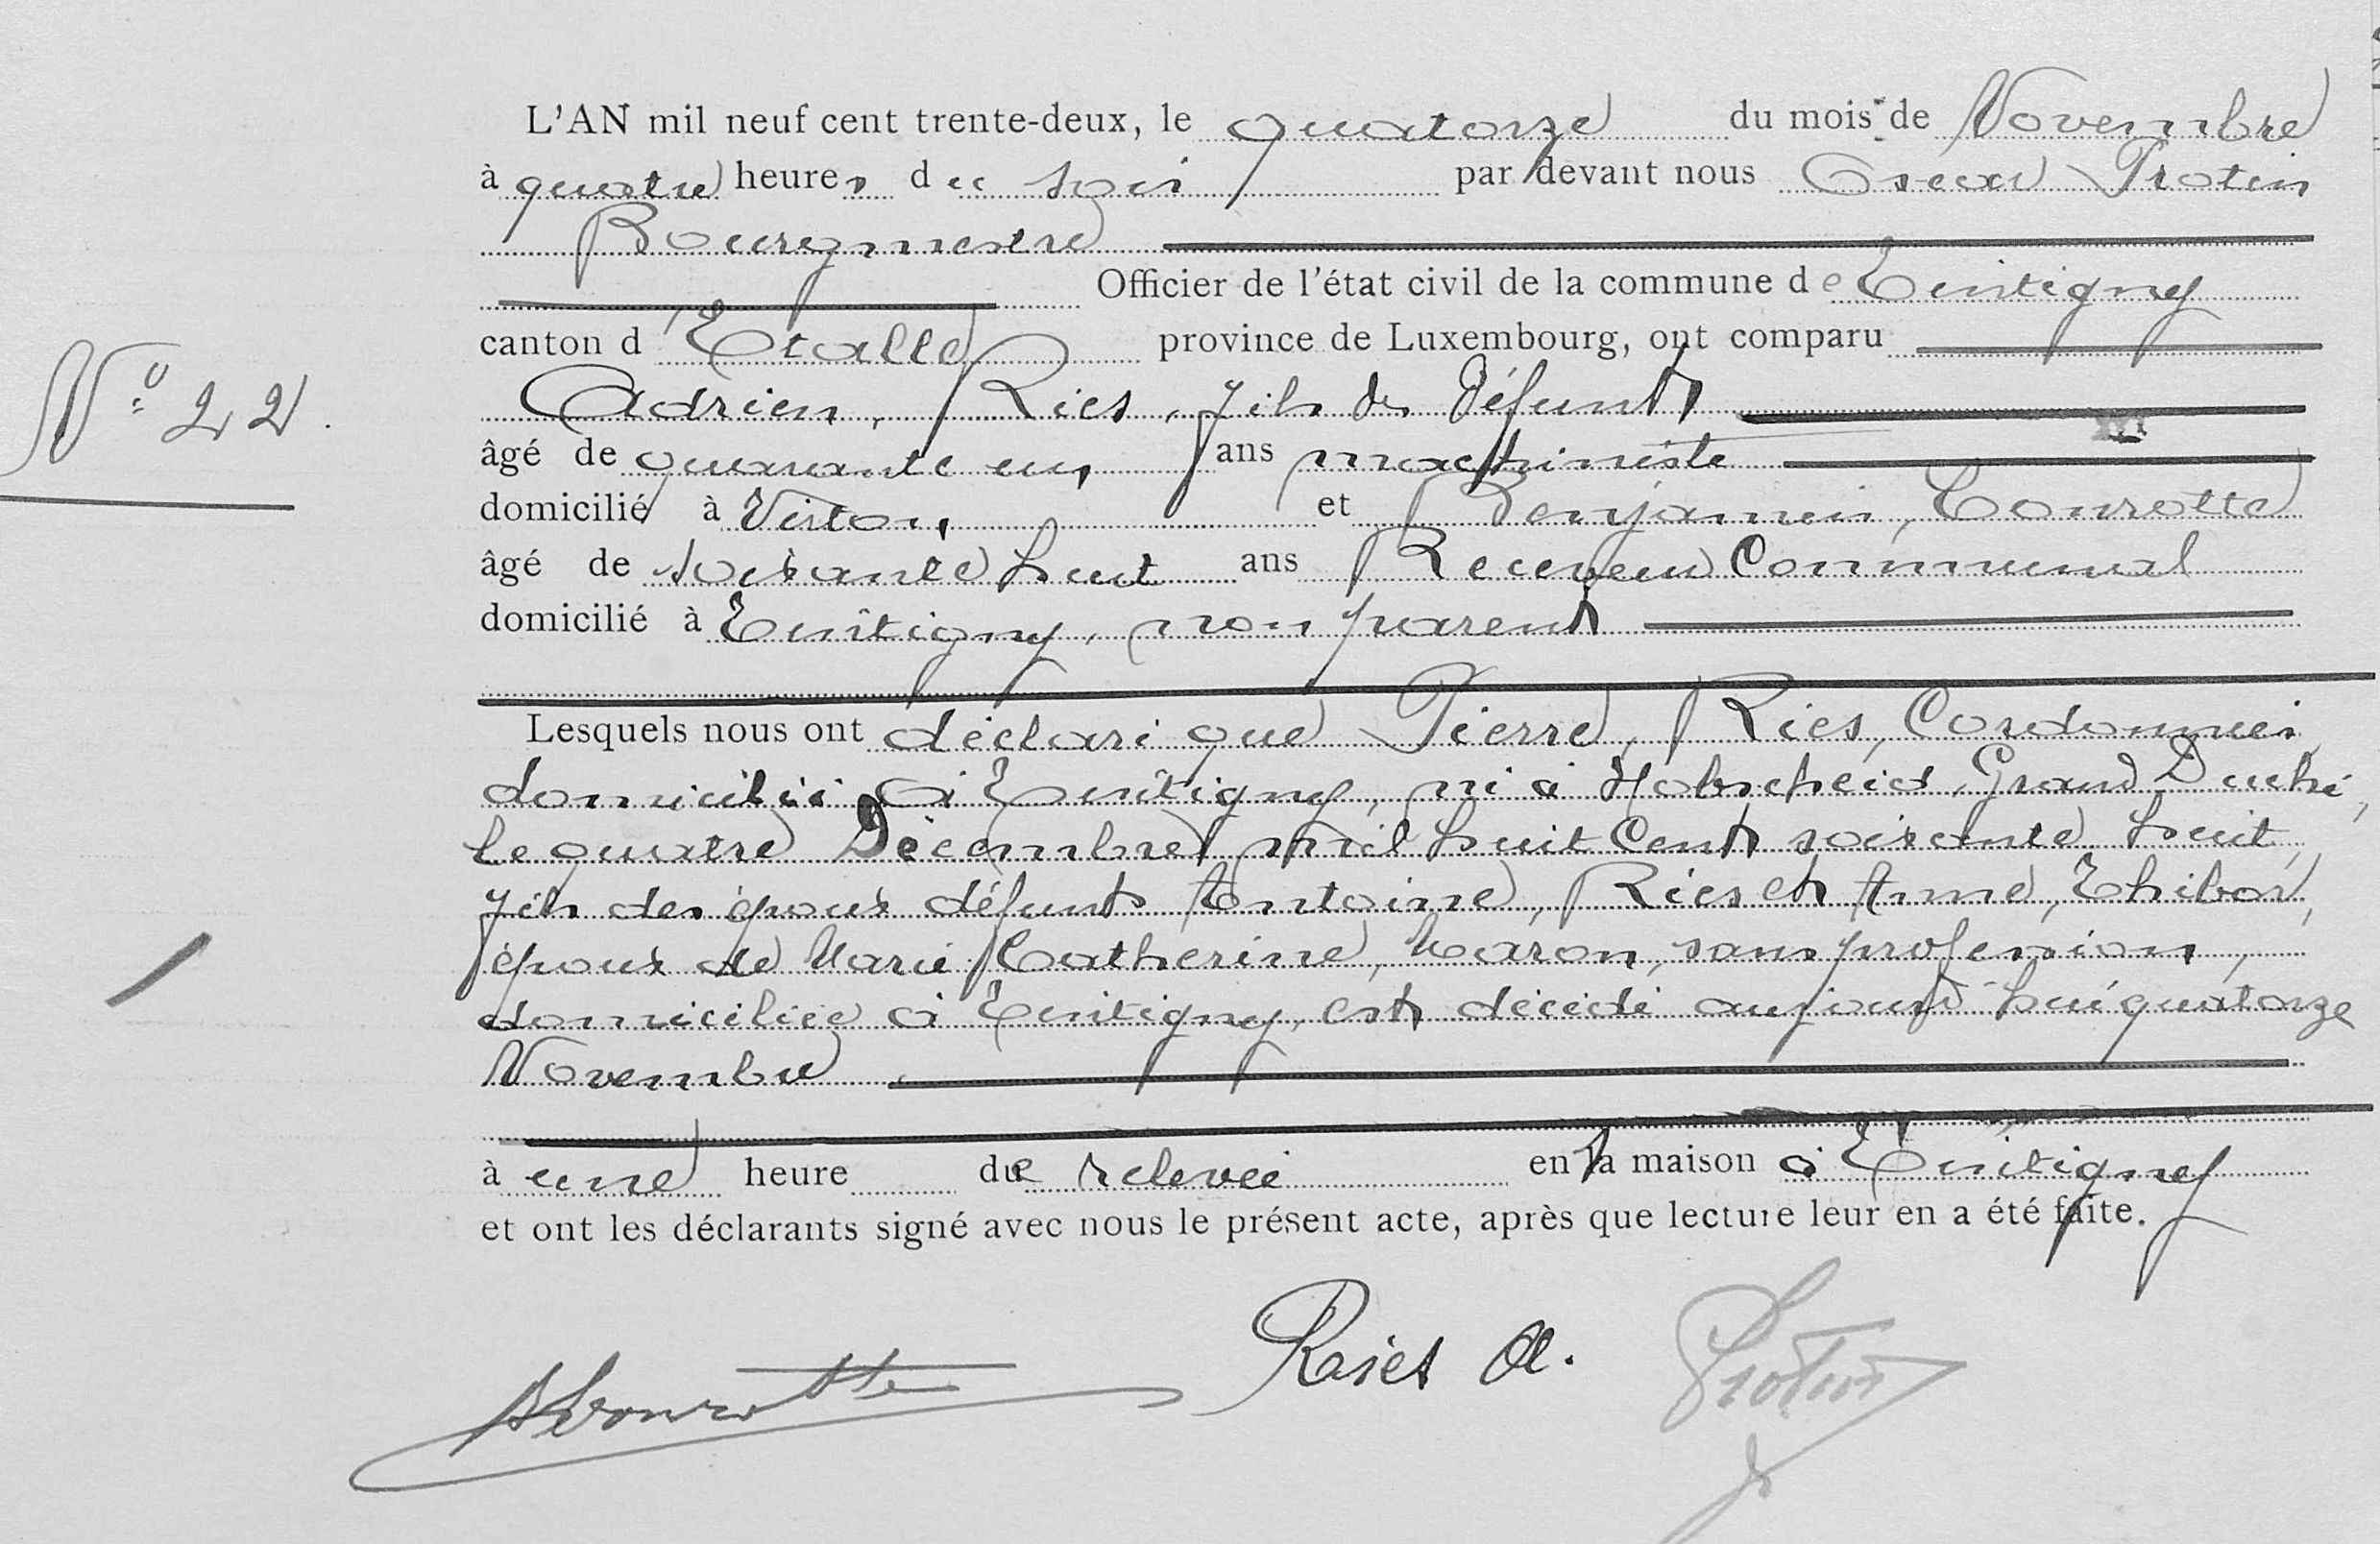 L'AN mil neuf cent trente-deux, le quatorze du mois de Novembre
à quatre heures du soir par devant nous Oscar Protin
Bourgmestre
Officier de l'état civil de la commune de Tintigny
canton d'Etalle province de Luxembourg, ont comparu
Adrien, Ries, fils du défunt
N° 22.
âgé de quarante un ans machiniste
domicilié à Virton, et Benjamin, Lonrotte
âgé de soixante huit ans Receveur Communal
domicilié à Tintigny, non parent
Lesquels nous ont déclaré que Pierre, Ries, Cordonnier,
domicilié à Tintigny, né à Hobscheid, Grand Duché,
le quatre Décembre mil huit Cent soixante huit,
fils des époux défunts Antoine, Ries et Anne, Thibor,
époux de Marie Catherine, Maron, sans profession,
domiciliée à Tintigny, est décédé aujourd'hui quatorze
Novembre
à une heure de relevée en la maison à Tintigny
et ont les déclarants signé avec nous le présent acte, après que lecture leur en a été faite.
Ries A. Protin